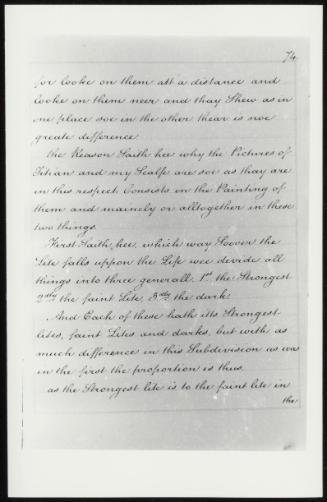 74
for looke on them att a distance and
looke on them neer and thay Shew as in
one place soe in the other thear is noe
greate difference
the Reason Saith hee why the Pictures of
Titian and my Sealfe are soe as thay are
in this respect. Consists in the Painting of
them and mainely or alltogether in these
two things.
First Saith hee, which way Soever the
Lite falls uppon the Life wee devide all
things into three generall. 1st. the Strongest
2dly the faint Lite, 3dly the dark
And Each of these hath its Strongest
lites, faint Lites and darks, but with as
much difference in this Subdivision as was
in the first the proportion is thus.
as the Strongest lite is to the faint lite in
the